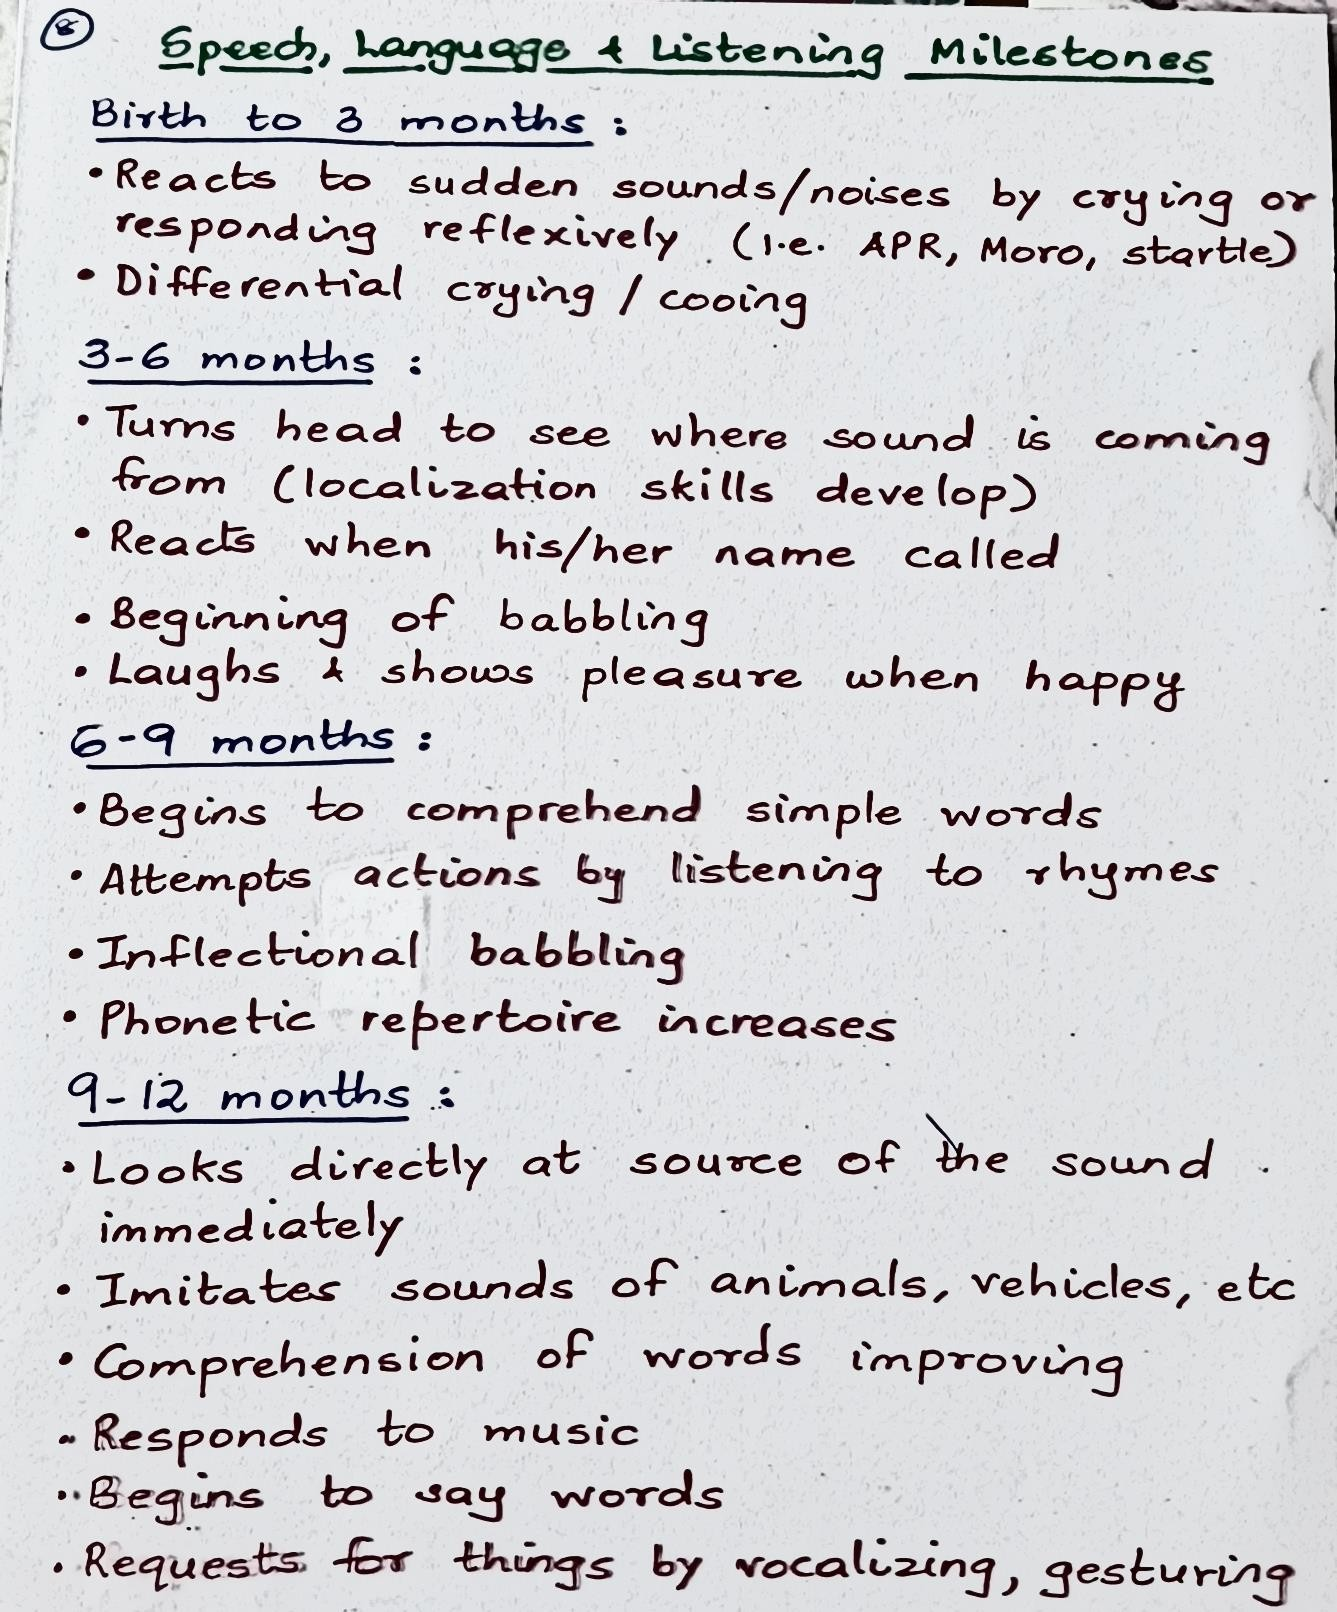 8
Speech, Language & Listening Milestones
Birth to 3 months :
• Reacts to sudden sounds/noises by crying or
responding reflexively (i.e. APR, Moro, startle)
• Differential crying / cooing
3-6 months :
• Turns head to see where sound is coming
from (localization skills develop)
• Reacts when his/her name called
• Beginning of babbling
• Laughs & shows pleasure when happy
6-9 months :
• Begins to comprehend simple words
• Attempts actions by listening to rhymes
• Inflectional babbling
• Phonetic repertoire increases
9-12 months :
• Looks directly at source of the sound
immediately
• Imitates sounds of animals, vehicles, etc
• Comprehension of words improving
• Responds to music
• Begins to say words
• Requests for things by vocalizing, gesturing